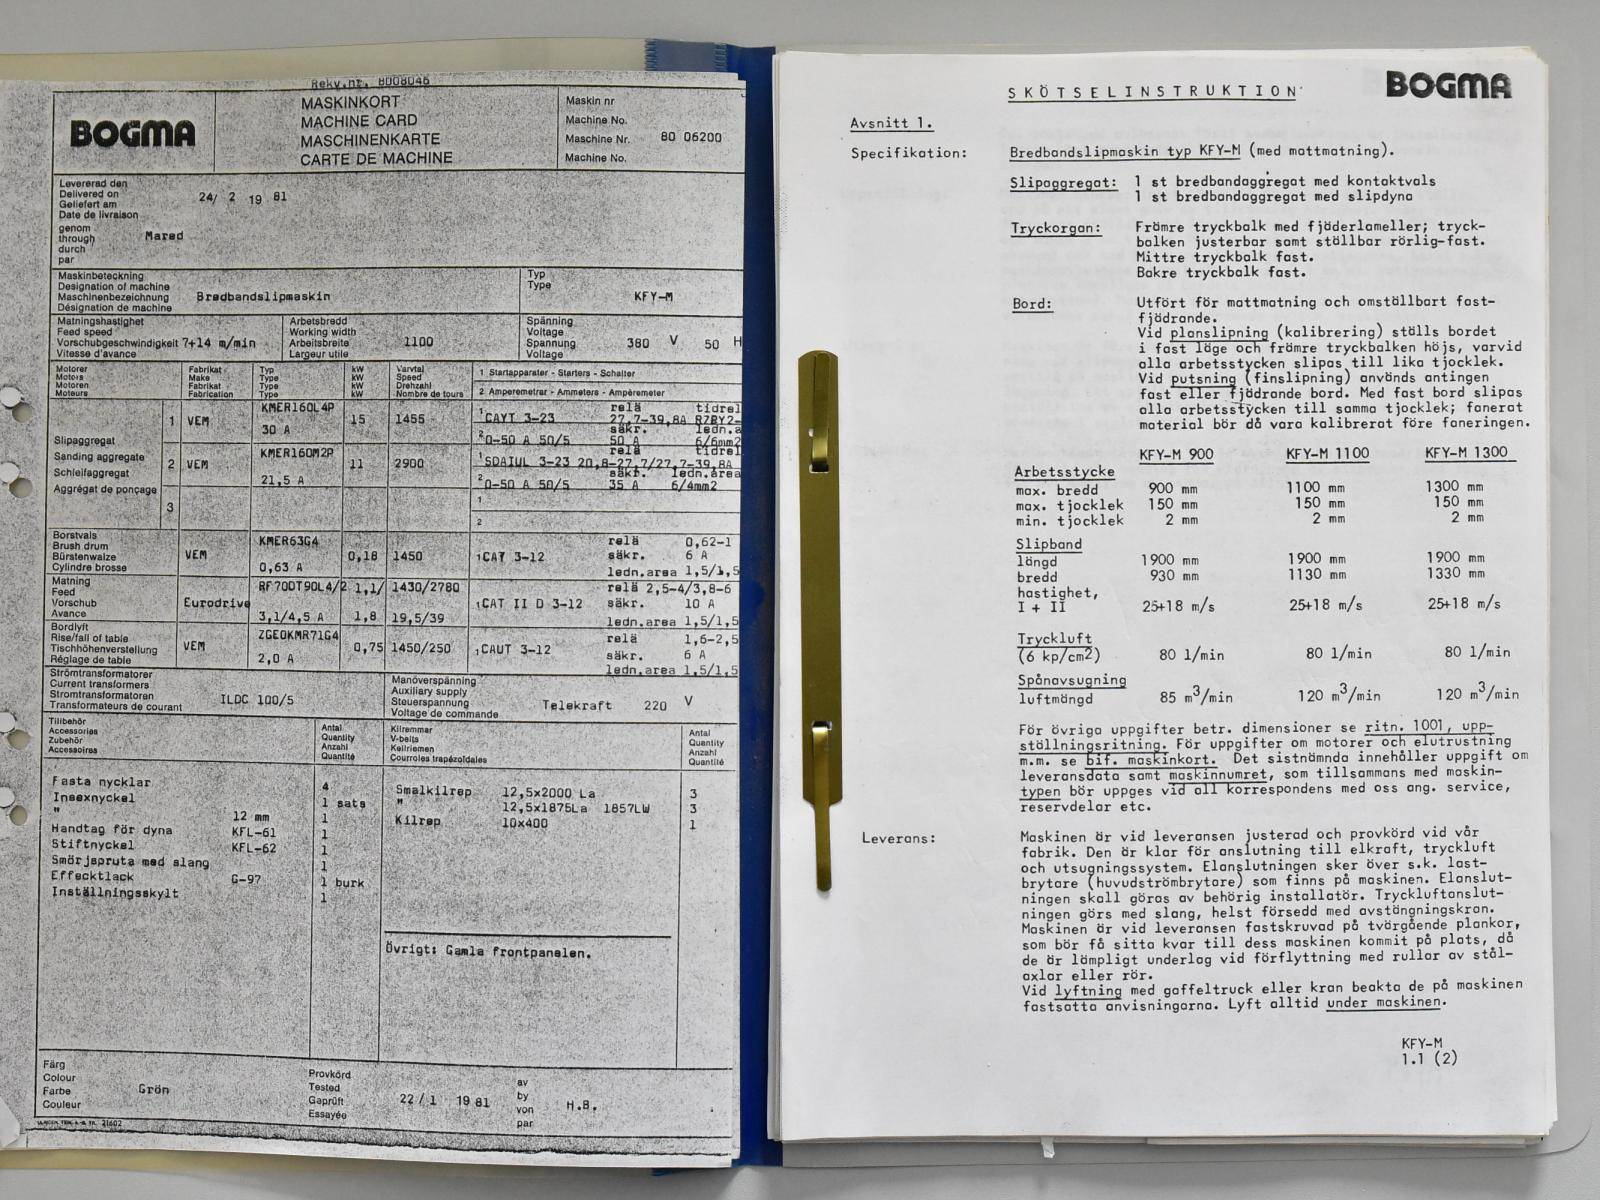 Rekv.nr. 8008046
BOGMA
MASKINKORT
MACHINE CARD
MASCHINENKARTE
CARTE DE MACHINE
Maskin nr
Machine No.
Maschine Nr. 80 06200
Machine No.
Levererad den
Delivered on
Geliefert am
Date de livraison
24/ 2 19 81
genom
through
durch
par
Mared
Maskinbeteckning
Designation of machine
Maschinenbezeichnung
Désignation de machine
Bredbandslipmaskin
Typ
Type
KFY-M
Matningshastighet
Feed speed
Vorschubgeschwindigkeit 7+14 m/min
Vitesse d'avance
Arbetsbredd
Working width
Arbeitsbreite
Largeur utile
1100
Spänning
Voltage
Spannung
Voltage
380 V 50 H
Motorer
Motors
Motoren
Moteurs
Fabrikat
Make
Fabrikat
Fabrication
Typ
Type
Type
Type
kW
kW
kW
kW
Varvtal
Speed
Drehzahl
Nombre de tours
1 Startapparater - Starters - Schalter
2 Amperemetrar - Ammeters - Ampèremeter
Slipaggregat
Sanding aggregate
Schleifaggregat
Aggrégat de ponçage
1 VEM KMER160L4P 15 1455
30 A
1 CAYT 3-23 relä tidrel
27,7-39,8A RZRY2-
säkr. ledn.a
2 0-50 A 50/5 50 A 6/6mm2
2 VEM KMER160M2P 11 2900
21,5 A
relä tidrel
1 SDAIUL 3-23 20,8-27,7/27,7-39,8A
säkr. ledn.area
2 0-50 A 50/5 35 A 6/4mm2
3
1
2
Borstvals
Brush drum
Bürstenwalze
Cylindre brosse
VEM KMER63G4 0,18 1450
0,63 A
1 CAT 3-12
relä 0,62-1
säkr. 6 A
ledn.area 1,5/1,5
Matning
Feed
Vorschub
Avance
Eurodrive RF70DT90L4/2 1,1/ 1430/2780
3,1/4,5 A 1,8 19,5/39
1 CAT II D 3-12
relä 2,5-4/3,8-6
säkr. 10 A
ledn.area 1,5/1,5
Bordlyft
Rise/fall of table
Tischhöhenverstellung
Réglage de table
VEM ZGEOKMR71G4 0,75 1450/250
2,0 A
1 CAUT 3-12
relä 1,6-2,5
säkr. 6 A
ledn.area 1,5/1,5
Strömtransformatorer
Current transformers
Stromtransformatoren
Transformateurs de courant
ILDC 100/5
Manöverspänning
Auxiliary supply
Steuerspannung
Voltage de commande
Telekraft 220 V
Tillbehör
Accessories
Zubehör
Accessoires
Antal
Quantity
Anzahl
Quantité
Kilremmar
V-belts
Keilriemen
Courroies trapézoïdales
Antal
Quantity
Anzahl
Quantité
Fasta nycklar 4
Insexnyckel 1 sats
" 12 mm 1
Handtag för dyna KFL-61 1
Stiftnyckel KFL-62 1
Smörjspruta med slang 1
Effecktlack G-97 1 burk
Inställningsskylt 1
Smalkilrep 12,5x2000 La 3
" 12,5x1875La 1857LW 3
Kilrep 10x400 1
Övrigt: Gamla frontpanelen.
Färg
Colour
Farbe
Couleur
Grön
Provkörd
Tested
Geprüft
Essayée
22/1 1981
av
by
von
par
H.B.
SKÖTSELINSTRUKTION
BOGMA
Avsnitt 1.
Specifikation: Bredbandslipmaskin typ KFY-M (med mattmatning).
Slipaggregat: 1 st bredbandaggregat med kontaktvals
1 st bredbandaggregat med slipdyna
Tryckorgan: Främre tryckbalk med fjäderlameller; tryck-
balken justerbar samt ställbar rörlig-fast.
Mittre tryckbalk fast.
Bakre tryckbalk fast.
Bord: Utfört för mattmatning och omställbart fast-
fjädrande.
Vid planslipning (kalibrering) ställs bordet
i fast läge och främre tryckbalken höjs, varvid
alla arbetsstycken slipas till lika tjocklek.
Vid putsning (finslipning) används antingen
fast eller fjädrande bord. Med fast bord slipas
alla arbetsstycken till samma tjocklek; fanerat
material bör då vara kalibrerat före faneringen.
KFY-M 900 KFY-M 1100 KFY-M 1300
Arbetsstycke
max. bredd 900 mm 1100 mm 1300 mm
max. tjocklek 150 mm 150 mm 150 mm
min. tjocklek 2 mm 2 mm 2 mm
Slipband
längd 1900 mm 1900 mm 1900 mm
bredd 930 mm 1130 mm 1330 mm
hastighet,
I + II 25+18 m/s 25+18 m/s 25+18 m/s
Tryckluft
(6 kp/cm2) 80 l/min 80 l/min 80 l/min
Spånavsugning
luftmängd 85 m3/min 120 m3/min 120 m3/min
För övriga uppgifter betr. dimensioner se ritn. 1001, upp-
ställningsritning. För uppgifter om motorer och elutrustning
m.m. se bif. maskinkort. Det sistnämnda innehåller uppgift om
leveransdata samt maskinnumret, som tillsammans med maskin-
typen bör uppges vid all korrespondens med oss ang. service,
reservdelar etc.
Leverans: Maskinen är vid leveransen justerad och provkörd vid vår
fabrik. Den är klar för anslutning till elkraft, tryckluft
och utsugningssystem. Elanslutningen sker över s.k. last-
brytare (huvudströmbrytare) som finns på maskinen. Elanslut-
ningen skall göras av behörig installatör. Tryckluftanslut-
ningen görs med slang, helst försedd med avstängningskran.
Maskinen är vid leveransen fastskruvad på tvärgående plankor,
som bör få sitta kvar till dess maskinen kommit på plats, då
de är lämpligt underlag vid förflyttning med rullar av stål-
axlar eller rör.
Vid lyftning med gaffeltruck eller kran beakta de på maskinen
fastsatta anvisningarna. Lyft alltid under maskinen.
KFY-M
1.1 (2)